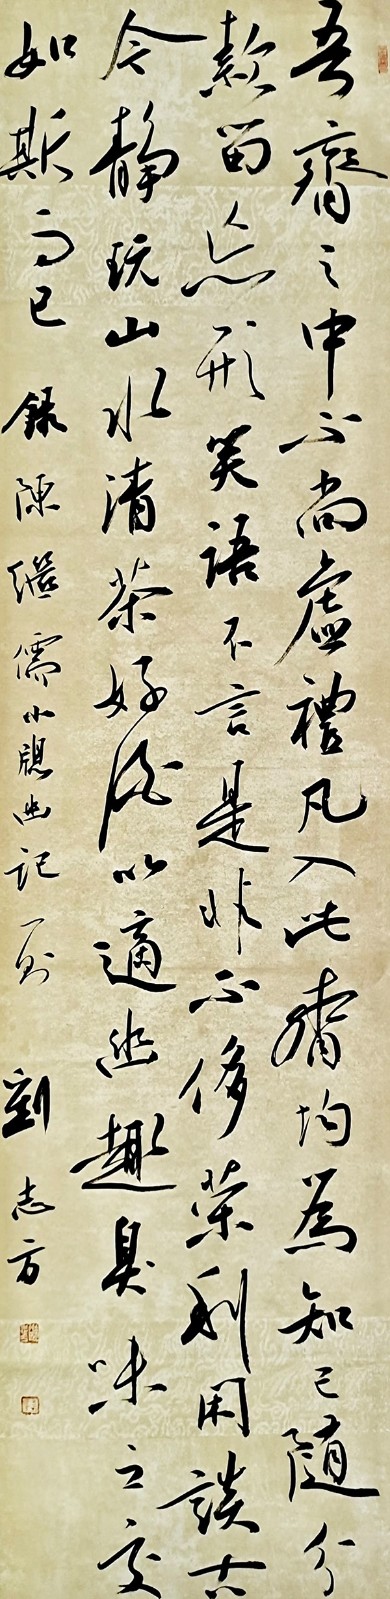 吾齋之中不尚虛禮凡入此齋均為知己隨分
款留忘形笑語不言是非不侈榮利閑談古
今靜玩山水清茶好酒以適幽趣臭味之交
如斯而已 錄陳繼儒小牕幽記一則 劉志方